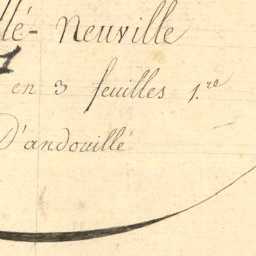 llé-Neuville
1
en 3 feuilles 1.re
D'andouillé